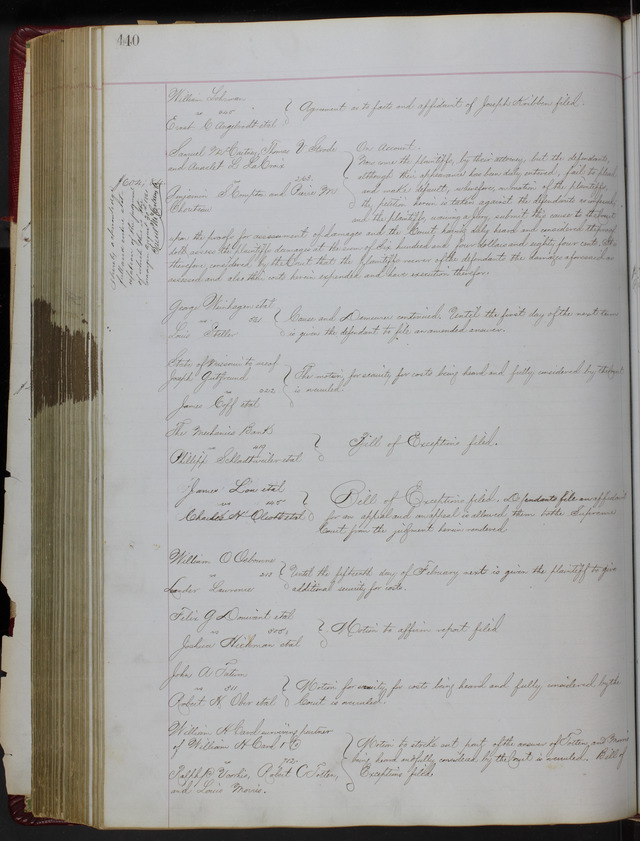 440
William
vs
Ernst C Angelrodt etal
Agreement as to facts and affidavit of Joseph filed.
Samuel McCartney, James V
and D
vs 263
Benjamin S Compton and Pierre M
Chouteau
On Account.
Now come the plaintiffs, by their attorney, but the defendants,
although their appearance has been duly entered, fail to plead
and make default, wherefore, on motion of the plaintiffs,
the petition herein is taken against the defendants as confessed
and the plaintiffs, waiving a jury, submit this cause to the Court
upon the proofs for assessment of damages and the Court having duly heard and considered the proofs
doth assess the plaintiffs damages at the sum of six hundred and four dollars and eighty four cents. It is
therefore considered by the Court that the plaintiffs recover of the defendants the damages aforesaid as
assessed and also their costs herein expended and have execution therefor.
George etal
vs
Louis
Cause and Demurrer continued. Until the first day of the next term
is given the defendant to file an amended answer.
State of Missouri to use of
Joseph Gutfreund
vs 222
James Goff etal
The motion for security for costs being heard and fully considered by the Court
is overruled
The Mechanics Bank
vs
Philipp etal
Bill of Exceptions filed.
James Low etal
vs
Charles H etal
Bill of Exceptions filed. Defendants file an affidavit
for an appeal and an appeal is allowed them to the Supreme
Court from the judgment herein rendered
William O Osbourne
vs 218
Lawrence
Until the fifteenth day of February next is given the plaintiff to give
additional security for costs.
Felix G etal
vs
Hickman etal
Motion to affirm report filed
John A Tatum
vs 511
Robert H Ober etal
Motion for security for costs being heard and fully considered by the
Court is overruled.
William H Card surviving partner
of William H Card & Co
vs 712
Ralph Robert C Totten,
and Louis Morris.
Motion to strike out part of the answer of Totten and Morris
being heard and fully considered by the Court is overruled. Bill of
Exceptions filed.